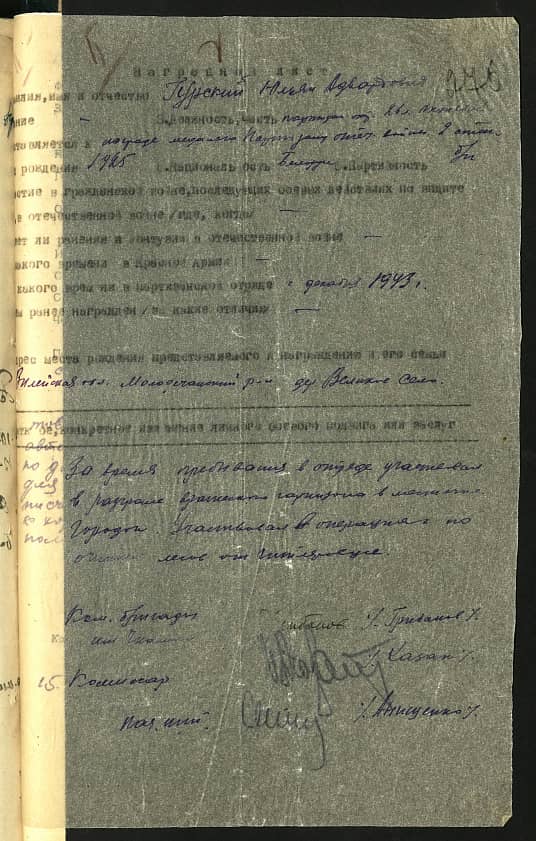 Наградной лист
276
имя и отчество Гурский Юльян Адвардович
ние - 3.Должность,часть партизан от.
ставляется к награде медалью Партизану отеч. войны 2 степ.
рождения 1925 Национальность Белорус .Партийность б/п
стие в гражданской войне,последующих боевых действиях по защите
в отечественной войне /где, когда/ —
ет ли ранения и контузии в отечественной войне —
какого времени в Красной Армии —
какого времени в партизанском отряде с декабря 1943 г.
ранее награжден /за какие отличия/ —
рес места рождения представляемого к награждению и его семьи
Вилейская обл. Молодечанский р-н дер Великое Село.
конкретное изложение личного боевого подвига или заслуг
За время пребывания в отряде участвовал
в разгроме вражеского гарнизона в местечке
Городок. Участвовал в операциях по
лесов от
Ком. бригады /. Грибанов /.
им Чкалова
15. Комиссар /. Казак /.
Нач. штаб. /. Анищенко /.